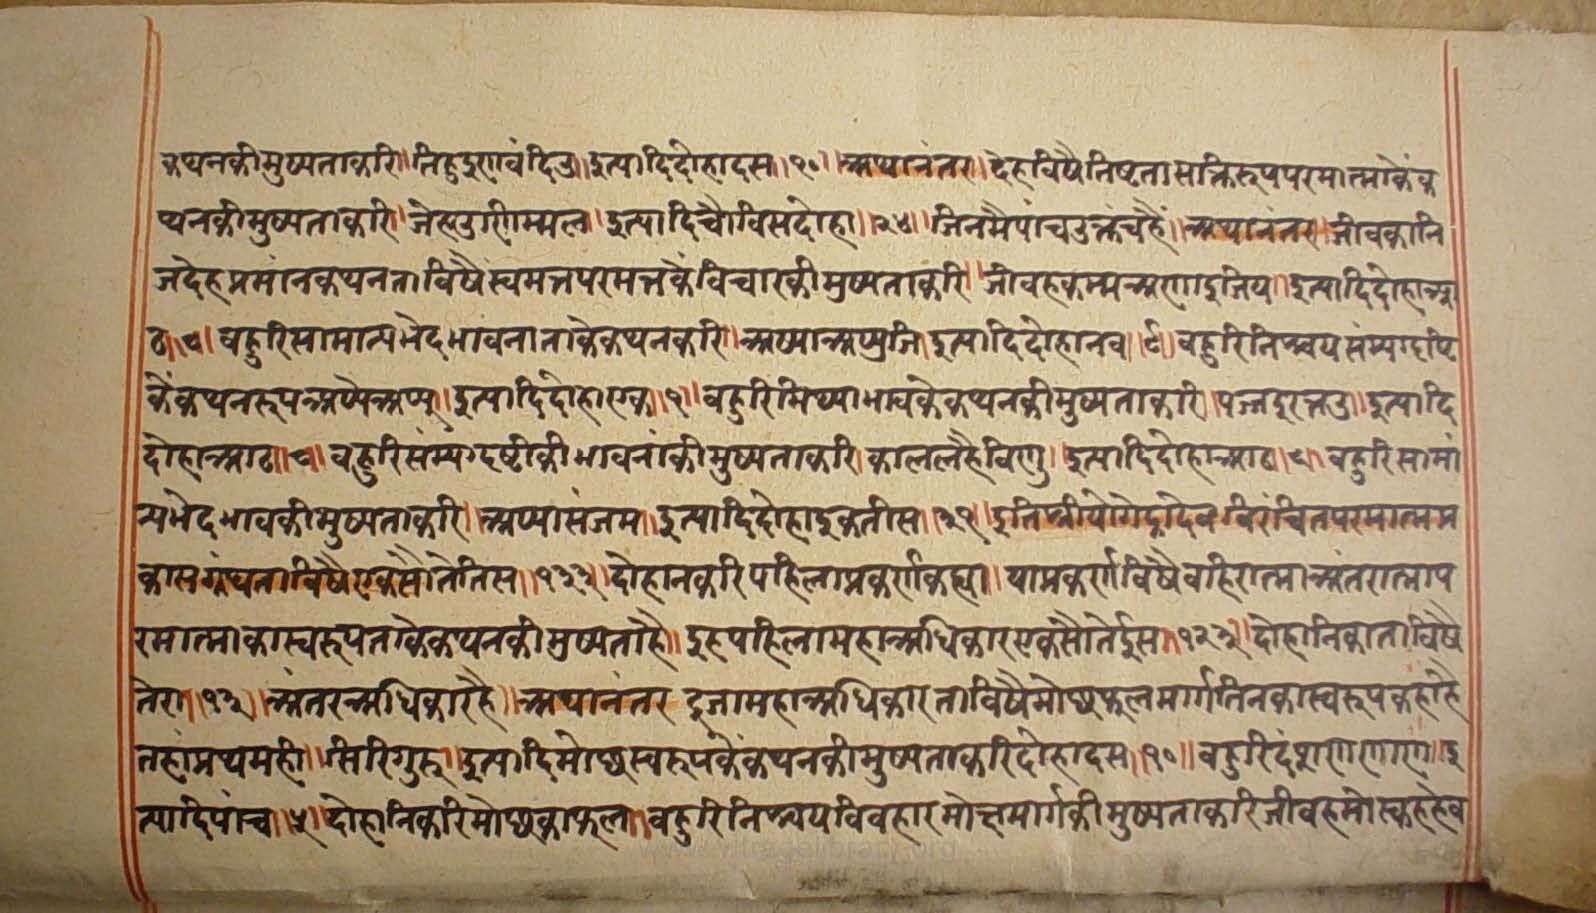 कथनकी मुख्यता करि। तिहुइणवंदिउ। इत्यादि दोहा दस। १०। अथानंतर। देह विषै तिष्टता सक्तिरूप परमात्मा कैं क
थन की मुख्यता करि। जेहउ णिम्मल। इत्यादि चौविस दोहा। २४। जिनमै पांच उक्तं च हैं। अथानंतर। जीवका नि
ज देह प्रमांन कथन ता विषै स्वमत परमत कै विचार की मुख्यता करि। जीवह कम्म अणाइ जिय। इत्यादि दोहा आ
ठ। ८। बहुरि सामान्य भेद भावना ताके कथन करि। अप्पा अप्पु जि। इत्यादि दोहा नव। ९। बहुरि निश्चय संम्यग्दृष्टि
कैं कथनरूप अप्पै अप्पु। इत्यादि दोहा एक। १। बहुरि मिथ्या भाव कै कथन की मुख्यता करि। पज्जइ रत्तउ। इत्यादि
दोहा आठ। ८। बहुरि संम्यग्दृष्टी की भावनां की मुख्यता करि। काल लहैविणु। इत्यादि दोहा आठ। ८। बहुरि सामां
न्य भेद भाव की मुख्यता करि। अप्पा संजम। इत्यादि दोहा इकतीस। ३१। इति श्री योगेंद्रदेव विरंचित परमात्म प्र
कास ग्रंथ ता विषै एक सौ तेतिस। १३३। दोहान करि पहिला प्रकर्ण कह्या। या प्रकर्ण विषै बहिरात्मा अंतरात्मा प
रमात्मा का स्वरूप ताकै कथन की मुख्यता है। इह पहिला महा अधिकार एक सौ तेईस। १२३। दोहानि का ता विषै
तेरा। १३। अंतर अधिकार है। अथानंतर दूजा महा अधिकार ता विषै मोष्य फल मार्ग तिनका स्वरूप कहां है
तहां प्रथम ही। सिरिगुरु। इत्यादि मोष्य स्वरूप कैं कथन की मुख्यता करि दोहा दस। १०॥ बहुरि दंसणणाण। इ
त्यादि पांच। ५। दोहानि करि मोष्य का फल। बहुरि निश्चय विवहार मोक्ष मार्ग की मुख्यता करि जीवह मोक्खह हेव